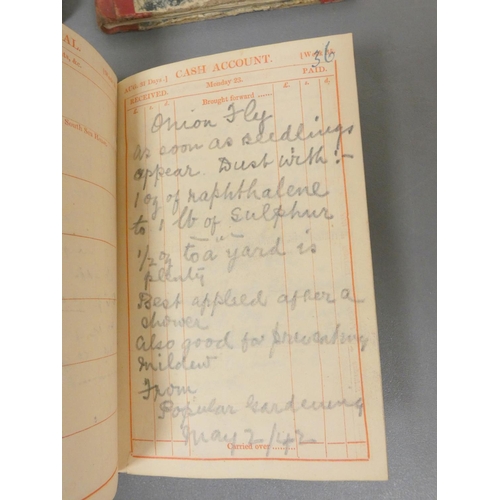 36
CASH ACCOUNT.
RECEIVED.
Monday 23.
PAID.
£ s. d.
Brought forward
£ s. d.
Onion Fly
As soon as seedlings
appear. Dust with:-
1 oz of naphthalene
to 1 lb of Sulphur
— " —
1/2 oz to a yard is
plenty
Best applied after a
shower
Also good for preventing
Mildew
From
Popular Gardening
May 2/42
Carried over